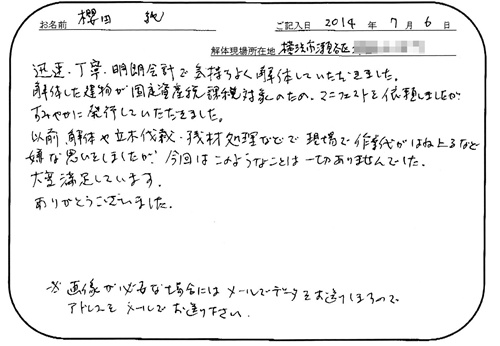 お名前 櫻田 純 ご記入日 2014 年 7 月 6 日
解体現場所在地 横浜市瀬谷区
迅速・丁寧・明朗会計で気持ちよく解体していただきました。
解体した建物が固定資産税課税対象のため、マニフェストを依頼しましたが
すみやかに発行していただきました。
以前、解体や立木伐裁・残材処理などで現場で作業代がはね上るなど
嫌な思いをしましたが、今回はこのようなことは一切ありませんでした。
大変満足しています。
ありがとうございました。
※画像が必要な場合にはメールでデータをお送りしますので
アドレスをメールでお送り下さい。